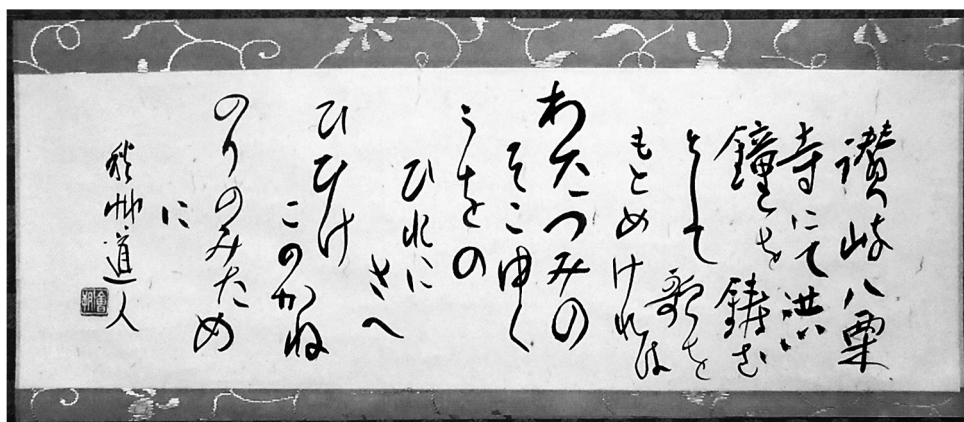 讃岐八栗
寺にて洪
鐘を鋳む
として歌を
もとめけれは
わたつみの
そこゆく
うをの
ひれに
さへ
ひひけ
このかね
のりのみため
に
秋艸道人